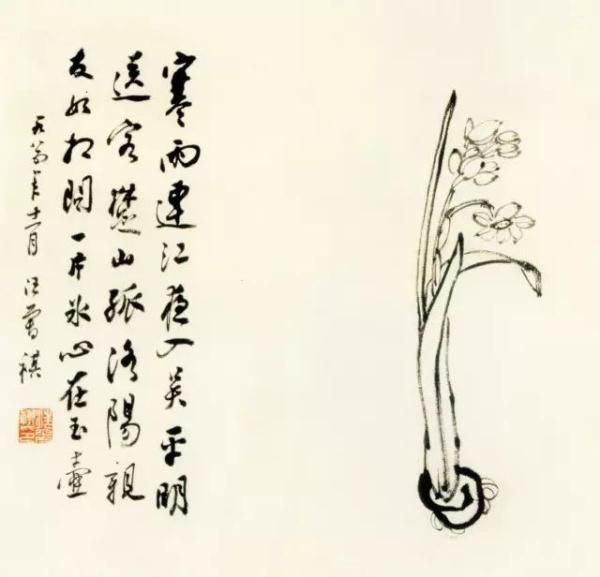 寒雨連江夜入吴平明
送客楚山孤洛陽親
友如相問一片氷心在玉壺
年十一月 汪曾祺